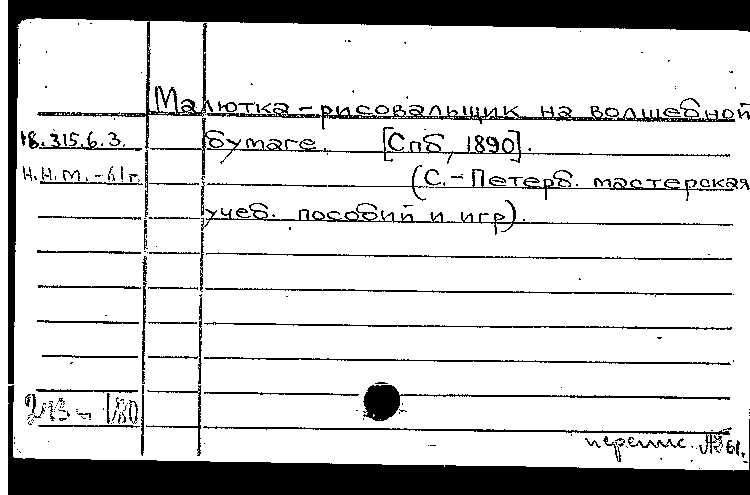 Малютка-рисовальщик на волшебной
18.315.6.3. бумаге. [Спб, 1890].
Н.Н.М.-61г. (С.-Петерб. мастерская
учеб. пособий и игр).
перепис. 61.